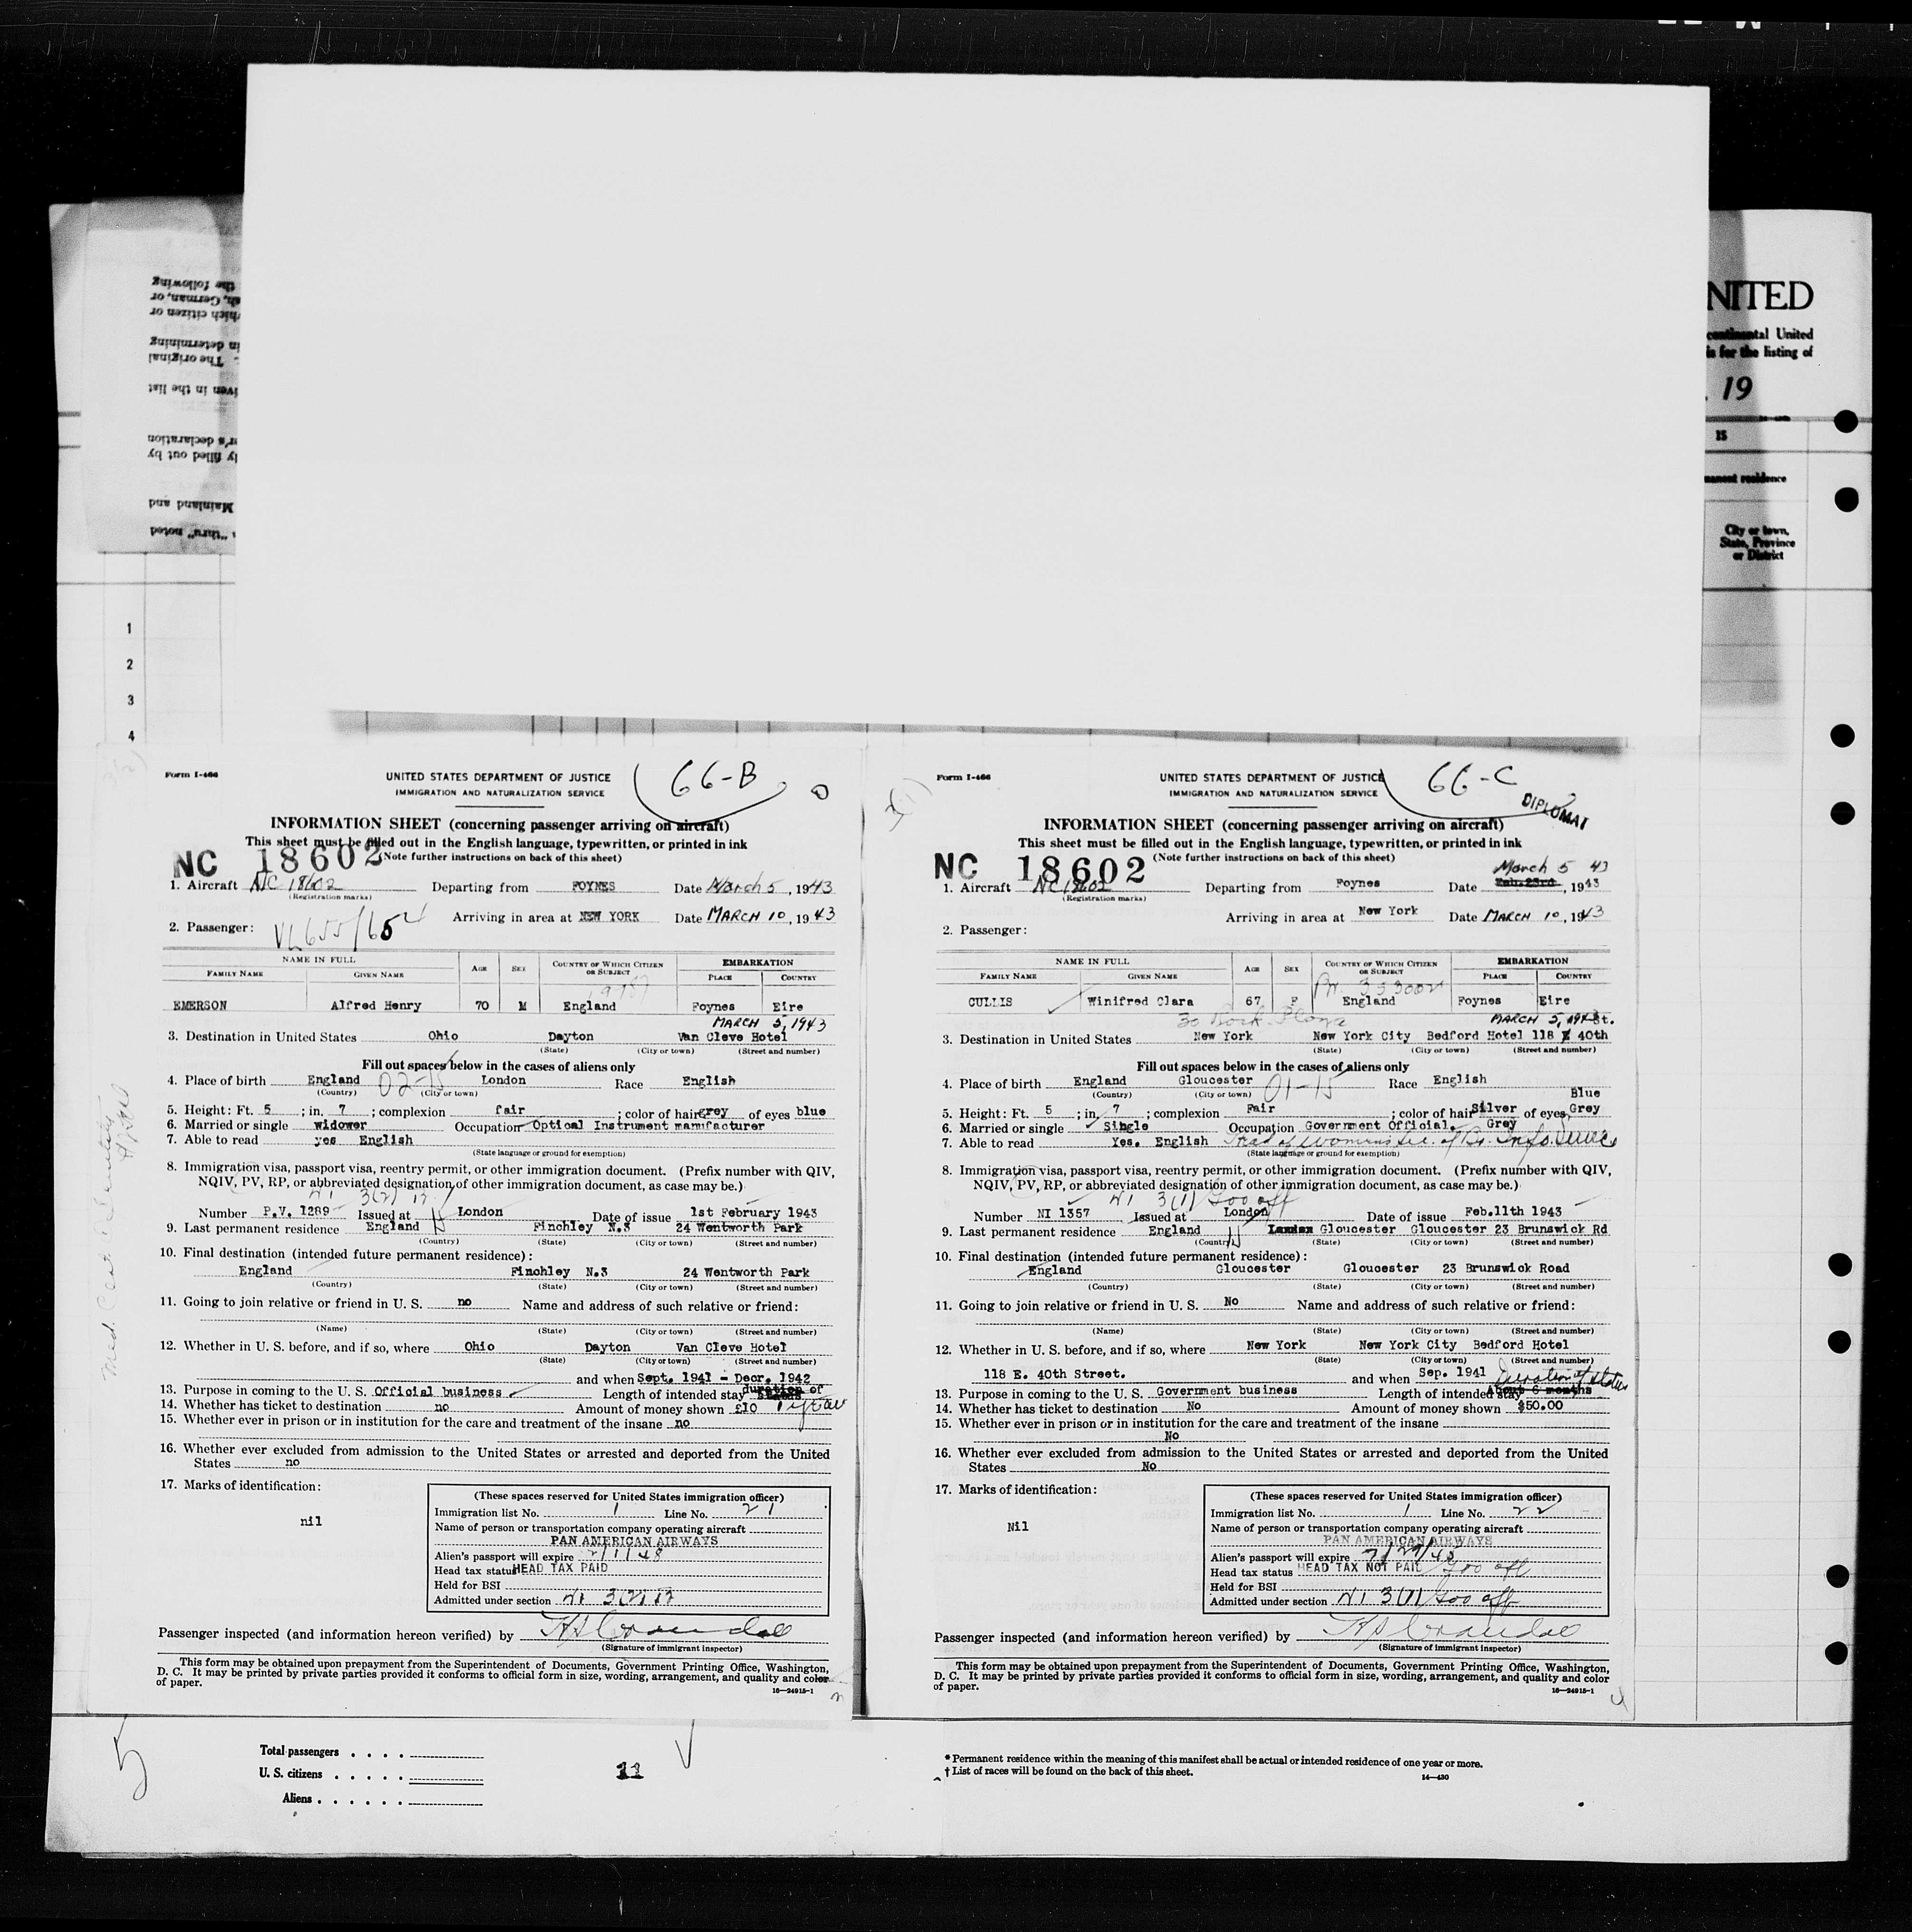 NITED
continental United
is for the listing of
, 19
15
manent residence
City or town,
State, Province
or District
the following
sh, German, or
which citizen or
in determining
. The original
iven in the list
r's declaration
ly filled out by
Mainland and
"thru" noted
1
2
3
4
Form I-466
UNITED STATES DEPARTMENT OF JUSTICE
IMMIGRATION AND NATURALIZATION SERVICE
66-B
INFORMATION SHEET (concerning passenger arriving on aircraft)
This sheet must be filled out in the English language, typewritten, or printed in ink
(Note further instructions on back of this sheet)
NC 18602
1. Aircraft NC 18602 Departing from FOYNES Date March 5, 1943
(Registration marks)
Arriving in area at NEW YORK Date MARCH 10, 1943
2. Passenger: VL655/654
NAME IN FULL
FAMILY NAME GIVEN NAME AGE SEX COUNTRY OF WHICH CITIZEN OR SUBJECT EMBARKATION PLACE COUNTRY
EMERSON Alfred Henry 70 M England Foynes Eire
MARCH 5, 1943
3. Destination in United States Ohio Dayton Van Cleve Hotel
(State) (City or town) (Street and number)
Fill out spaces below in the cases of aliens only
4. Place of birth England 02-15 London Race English
(Country) (City or town)
5. Height: Ft. 5; in. 7; complexion fair; color of hair grey of eyes blue
6. Married or single widower Occupation Optical Instrument manufacturer
7. Able to read yes English
(State language or ground for exemption)
8. Immigration visa, passport visa, reentry permit, or other immigration document. (Prefix number with QIV,
NQIV, PV, RP, or abbreviated designation of other immigration document, as case may be.)
Number P.V. 1289 Issued at London Date of issue 1st February 1943
9. Last permanent residence England Finchley N.3 24 Wentworth Park
(Country) (State) (City or town) (Street and number)
10. Final destination (intended future permanent residence):
England Finchley N.3 24 Wentworth Park
(Country) (State) (City or town) (Street and number)
11. Going to join relative or friend in U. S. no Name and address of such relative or friend:
(Name) (State) (City or town) (Street and number)
12. Whether in U. S. before, and if so, where Ohio Dayton Van Cleve Hotel
(State) (City or town) (Street and number)
and when Sept. 1941 - Decr. 1942
13. Purpose in coming to the U. S. Official business Length of intended stay duration of
14. Whether has ticket to destination no Amount of money shown £10
15. Whether ever in prison or in institution for the care and treatment of the insane no
16. Whether ever excluded from admission to the United States or arrested and deported from the United
States no
17. Marks of identification:
nil
(These spaces reserved for United States immigration officer)
Immigration list No. 1 Line No. 21
Name of person or transportation company operating aircraft
PAN AMERICAN AIRWAYS
Alien's passport will expire 2/1/48
Head tax status HEAD TAX PAID
Held for BSI
Admitted under section NI 3(2)
Passenger inspected (and information hereon verified) by
(Signature of immigrant inspector)
This form may be obtained upon prepayment from the Superintendent of Documents, Government Printing Office, Washington,
D. C. It may be printed by private parties provided it conforms to official form in size, wording, arrangement, and quality and color
of paper.
16—24915-1
Form I-466
UNITED STATES DEPARTMENT OF JUSTICE
IMMIGRATION AND NATURALIZATION SERVICE
66-C
DIPLOMAT
INFORMATION SHEET (concerning passenger arriving on aircraft)
This sheet must be filled out in the English language, typewritten, or printed in ink
(Note further instructions on back of this sheet)
NC 18602
March 5 43
1. Aircraft NC 18602 Departing from Foynes Date Feb. 23rd, 1943
(Registration marks)
Arriving in area at New York Date MARCH 10, 1943
2. Passenger:
NAME IN FULL
FAMILY NAME GIVEN NAME AGE SEX COUNTRY OF WHICH CITIZEN OR SUBJECT EMBARKATION PLACE COUNTRY
CULLIS Winifred Clara 67 F England Foynes Eire
30 Rock. Plaza MARCH 5, 1943 St.
3. Destination in United States New York New York City Bedford Hotel 118 E 40th
(State) (City or town) (Street and number)
Fill out spaces below in the cases of aliens only
4. Place of birth England Gloucester 01-15 Race English
(Country) (City or town)
Blue
5. Height: Ft. 5; in. 7; complexion Fair; color of hair Silver of eyes Grey
Grey
6. Married or single Single Occupation Government Official.
7. Able to read Yes. English Head of Womens Sec. of Br. Info. Service
(State language or ground for exemption)
8. Immigration visa, passport visa, reentry permit, or other immigration document. (Prefix number with QIV,
NQIV, PV, RP, or abbreviated designation of other immigration document, as case may be.)
NI 3(1) Gov off
Number NI 1357 Issued at London Date of issue Feb.11th 1943
9. Last permanent residence England London Gloucester Gloucester 23 Brunswick Rd
(Country) (State) (City or town) (Street and number)
10. Final destination (intended future permanent residence):
England Gloucester Gloucester 23 Brunswick Road
(Country) (State) (City or town) (Street and number)
11. Going to join relative or friend in U. S. No Name and address of such relative or friend:
(Name) (State) (City or town) (Street and number)
12. Whether in U. S. before, and if so, where New York New York City Bedford Hotel
(State) (City or town) (Street and number)
118 E. 40th Street. and when Sep. 1941 Duration of status
13. Purpose in coming to the U. S. Government business Length of intended stay About 6 months
14. Whether has ticket to destination No Amount of money shown $50.00
15. Whether ever in prison or in institution for the care and treatment of the insane
No
16. Whether ever excluded from admission to the United States or arrested and deported from the United
States No
17. Marks of identification:
Nil
(These spaces reserved for United States immigration officer)
Immigration list No. 1 Line No. 22
Name of person or transportation company operating aircraft
PAN AMERICAN AIRWAYS
Alien's passport will expire 7/29/43
Head tax status HEAD TAX NOT PAID Gov off
Held for BSI
Admitted under section NI 3(1) Gov off
Passenger inspected (and information hereon verified) by
(Signature of immigrant inspector)
This form may be obtained upon prepayment from the Superintendent of Documents, Government Printing Office, Washington,
D. C. It may be printed by private parties provided it conforms to official form in size, wording, arrangement, and quality and color
of paper.
16—24915-1
5
Total passengers . . . .
U. S. citizens . . . . .
Aliens . . . . . .
11
* Permanent residence within the meaning of this manifest shall be actual or intended residence of one year or more.
† List of races will be found on the back of this sheet.
14—430